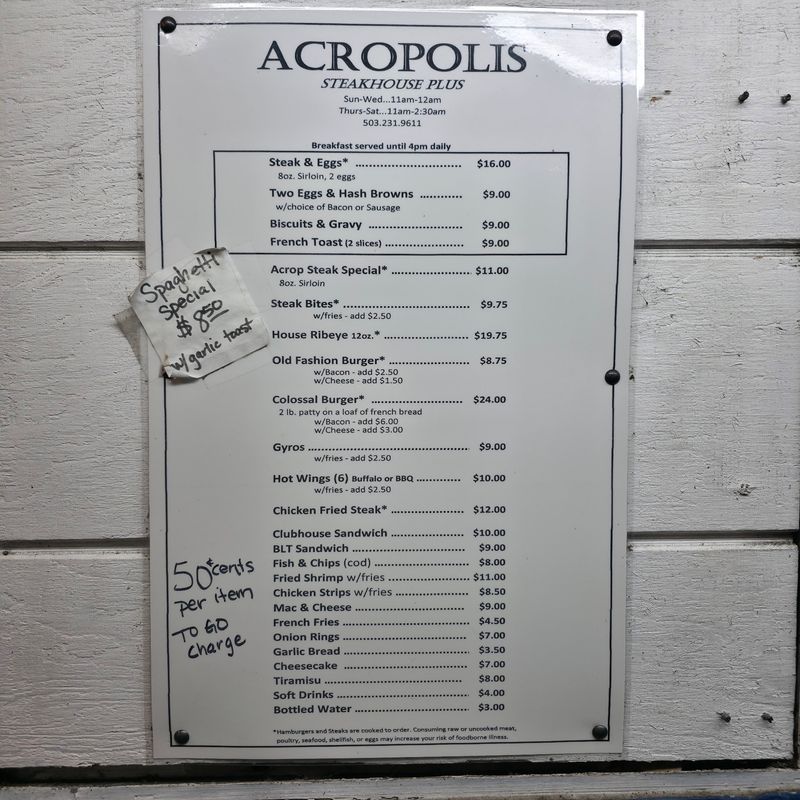 ACROPOLIS
STEAKHOUSE PLUS
Sun-Wed...11am-12am
Thurs-Sat...11am-2:30am
503.231.9611
Breakfast served until 4pm daily
Steak & Eggs* ........................... $16.00
8oz. Sirloin, 2 eggs
Two Eggs & Hash Browns .............. $9.00
w/choice of Bacon or Sausage
Biscuits & Gravy ........................... $9.00
French Toast (2 slices) ..................... $9.00
Acrop Steak Special* ..................... $11.00
8oz. Sirloin
Steak Bites* ................................ $9.75
w/fries - add $2.50
House Ribeye 12oz.* ..................... $19.75
Old Fashion Burger* ..................... $8.75
w/Bacon - add $2.50
w/Cheese - add $1.50
Colossal Burger* ........................... $24.00
2 lb. patty on a loaf of french bread
w/Bacon - add $6.00
w/Cheese - add $3.00
Gyros ......................................... $9.00
w/fries - add $2.50
Hot Wings (6) Buffalo or BBQ ............ $10.00
w/fries - add $2.50
Chicken Fried Steak* ..................... $12.00
Clubhouse Sandwich ..................... $10.00
BLT Sandwich .............................. $9.00
Fish & Chips (cod) ........................ $8.00
Fried Shrimp w/fries ..................... $11.00
Chicken Strips w/fries .................. $8.50
Mac & Cheese .............................. $9.00
French Fries ................................ $4.50
Onion Rings ................................ $7.00
Garlic Bread ................................ $3.50
Cheesecake ................................ $7.00
Tiramisu ..................................... $8.00
Soft Drinks .................................. $4.00
Bottled Water .............................. $3.00
*Hamburgers and Steaks are cooked to order. Consuming raw or uncooked meat,
poultry, seafood, shellfish, or eggs may increase your risk of foodborne illness.
Spaghetti
Special
$ 8.50
w/garlic toast
50¢ cents
per item
TO GO
charge